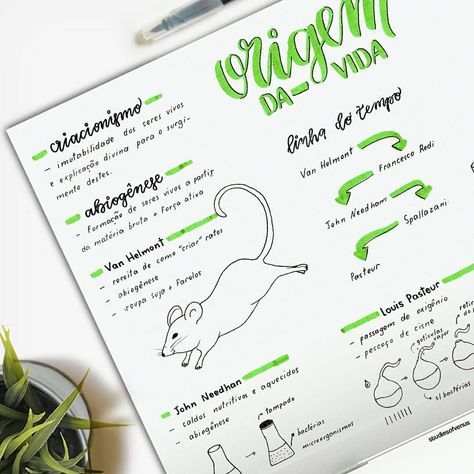 origem
DA - VIDA
criacionismo
- imutabilidade dos seres vivos
e explicação divina para o surgi-
mento destes.
abiogênese
- Formação de seres vivos a partir
da matéria bruta + Força ativa
Van Helmont
- receita de como "criar" ratos
- abiogênese
- roupa suja + farelos
John Needhan
- caldos nutritivos e aquecidos
- abiogênese
tampado
bactérias
microorgenismos
linha do tempo
Van Helmont
Francesco Redi
John Needham
Spallazani
Pasteur
Louis Pasteur
- passagem de oxigênio
- pescoço de cisne
gotículas
vapor
s/ bactérias
studiesofvenus